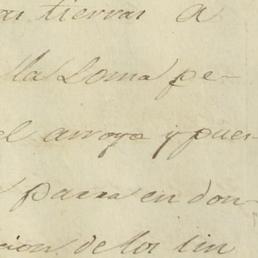 as tierras a
lla Loma pe-
el arroyo y puer-
parra en don-
cion de los lin